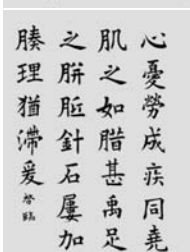 心憂勞成疾同堯
肌之如腊甚禹足
之胼胝針石屢加
腠理猶滯爰
臨